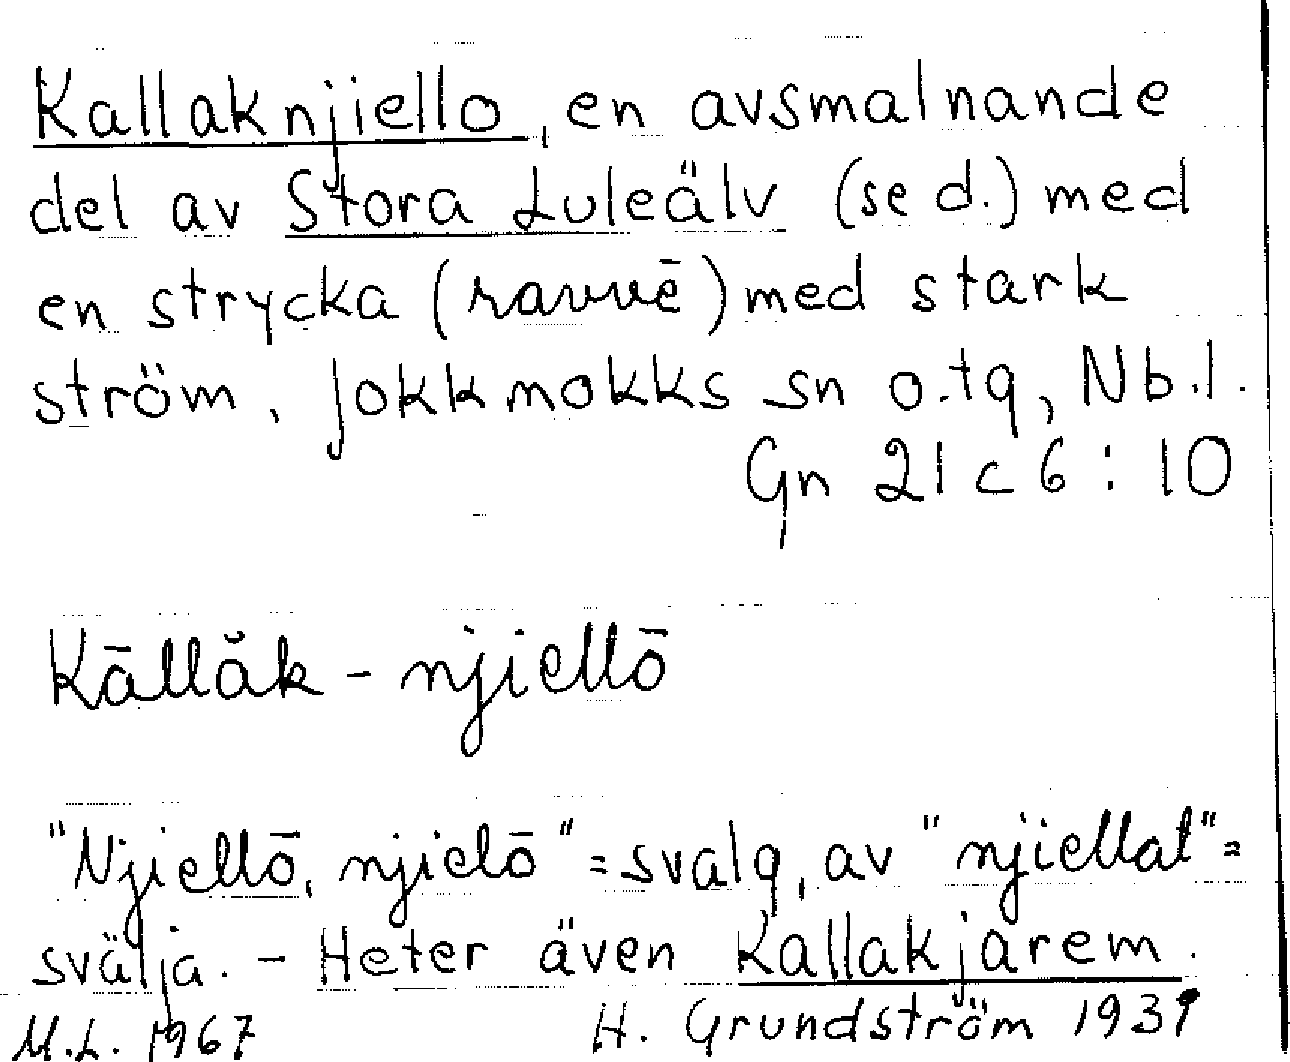 Kallaknjiello, en avsmalnande
del av Stora Luleälv (se d.) med
en strycka (ravvē) med stark
ström. Jokkmokks sn o. tg, Nb.l.
Gn 21 c 6 : 10
Kāllăk - njiellō
"Njiellō, njielō" = svalg, av "njiellat" =
svälja. - Heter även Kallakjarem.
M.L. 1967 H. Grundström 1939